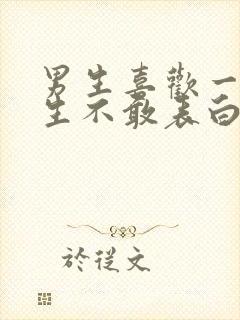 男生喜歡一
生不敢表白
於從文